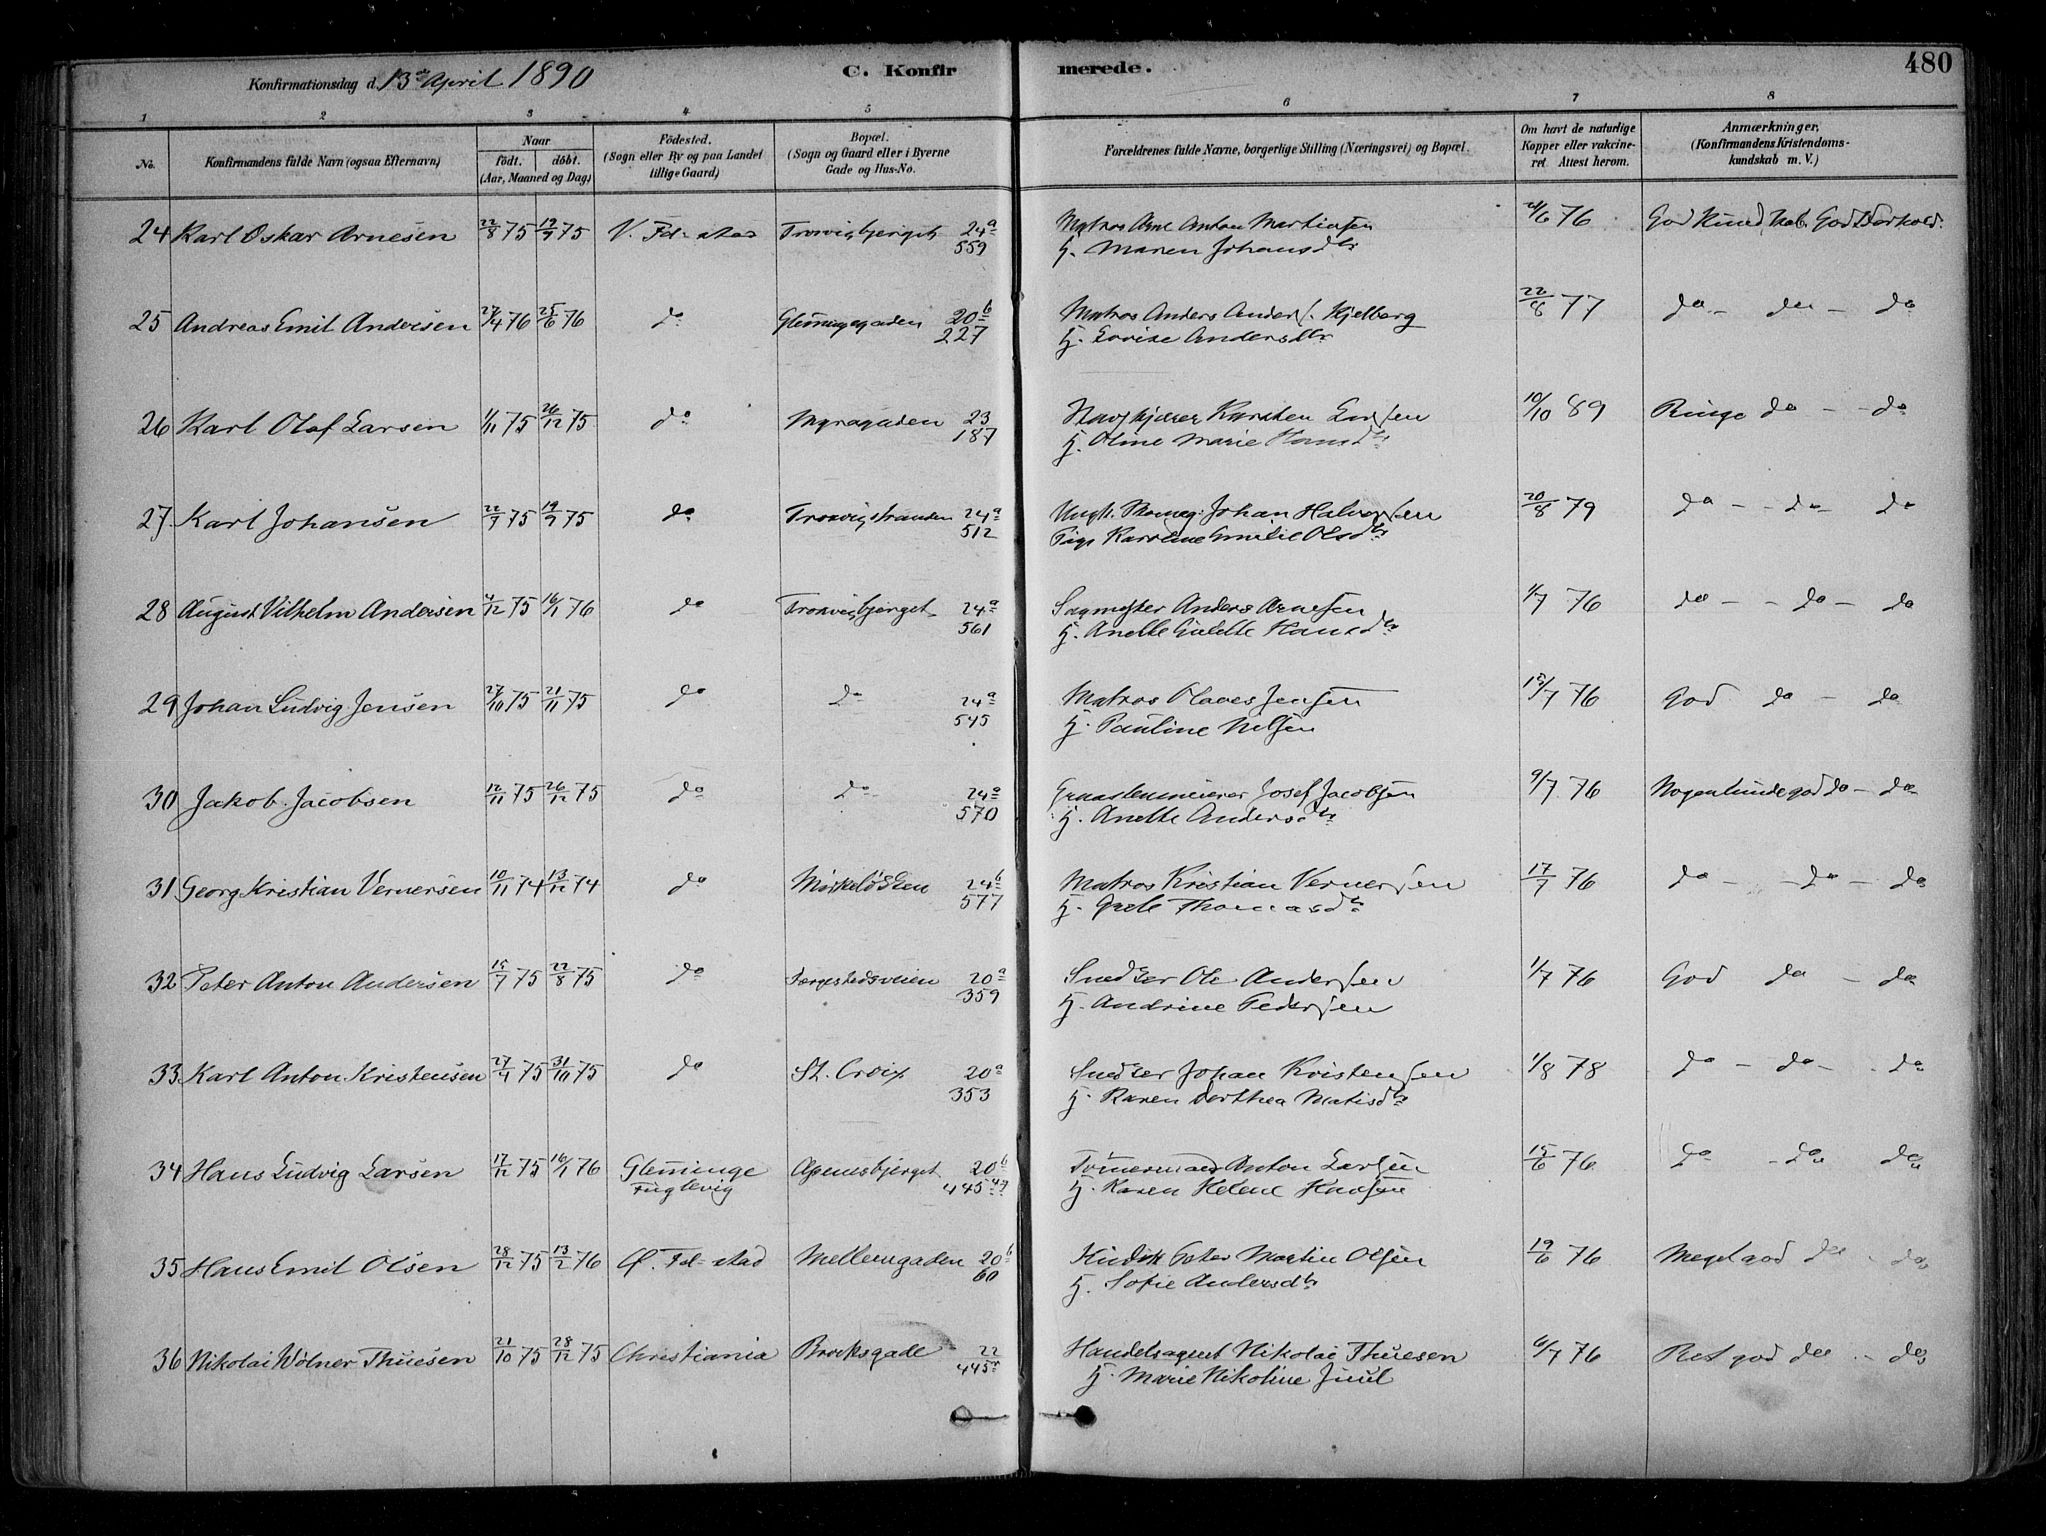 Konfirmationsdag d. 13de April 1890
C. Konfirmerede.
480
1 2 3 4 5 6 7 8
No.
Konfirmandens fulde Navn (ogsaa Efternavn)
Naar
födt. döbt.
(Aar, Maaned og Dag)
Födested.
(Sogn eller By og paa Landet
tillige Gaard)
Bopæl.
(Sogn og Gaard eller i Byerne
Gade og Hus-No.
Forældrenes fulde Navne, borgerlige Stilling (Næringsvei) og Bopæl.
Om havt de naturlige
Kopper eller vakcine-
ret. Attest herom.
Anmærkninger,
(Konfirmandens Kristendoms-
kundskab m. V.)
24 Karl Oskar Arnesen 22/8 75 19/9 75 V. Fd-stad Trosvigbjerget 24a Matros Arne Anton Martinsen 21/6 76 God Kundskab. God Forhold.
559 H. Maren Johansdtr
25 Andreas Emil Andersen 27/4 76 25/6 76 do Glemmegaden 20b Matros Anders Anders. Kjelberg 22/8 77 do - do - do
227 H. Lovise Andersdtr
26 Karl Olaf Larsen 1/11 75 26/12 75 do Myragaden 23 Karsten Larsen 10/10 89 Ringe do - - do
187 H. Oline Marie Hansdtr
27 Karl Johansen 22/7 75 19/9 75 do Trosvigstranden 24a Johan Halvorsen 20/8 79 do - - do - do
512 Pige Karoline Emilie Olsdtr
28 August Vilhelm Andersen 4/12 75 16/1 76 do Trosvigbjerget 24a Sagmester Anders Arnesen 1/7 76 do - - do - do
561 H. Anette Hansdtr
29 Johan Ludvig Jensen 27/10 75 21/11 75 do do 24a Matros Olaves Jensen 12/7 76 God do - do
545 H. Pauline Nilsen
30 Jakob Jacobsen 12/11 75 26/12 75 do do 24a Josef Jacobsen 9/7 76 Nogenlunde god do - do
570 H. Anette Andersdtr
31 Georg Kristian Vernersen 10/11 74 13/12 74 do 24b Matros Kristian Vernersen 17/7 76 do - - do - do
577 H. Thomasdtr
32 Peter Anton Andersen 15/7 75 22/8 75 do Færgestedsveien 20a Snedker Ole Andersen 1/7 76 God do - do
359 H. Andrine Pedersen
33 Karl Anton Kristensen 27/4 75 31/10 75 do St. Croix 20a Snedker Johan Kristensen 1/8 78 do - do - do
353 H. Karen Dorthea Matisdtr
34 Hans Ludvig Larsen 17/12 75 16/1 76 Glemminge Apenesbjerget 20b Tömermand Anton Larsen 15/6 76 do - do do
Fuglevig 445 H. Karen Helene Hansen
35 Hans Emil Olsen 28/12 75 13/2 76 Ø. Fd-stad Mellemgaden 20b Peter Martin Olsen 19/6 76 Meget god do - do
60 H. Sofie Andersdtr
36 Nikolai Wölner Thuesen 21/10 75 28/12 75 Christiania Brocksgade 22 Handelsagent Nikolai Thuesen 6/7 76 Ret god do - do
445a H. Marie Nikoline Juul